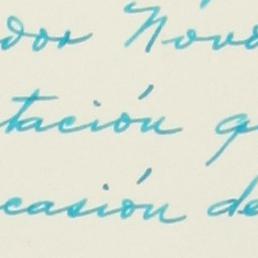 dor Nóvo
tación q
casión de